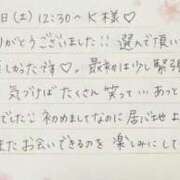 日(土) 12:30〜 K様♡
りがとうございました!! 選んで頂い
しかったです♡。最初は少し緊張
気づけばたくさん笑って…あっと
でした 初めましてなのに居心地よ
またお会いできるのを楽しみにして